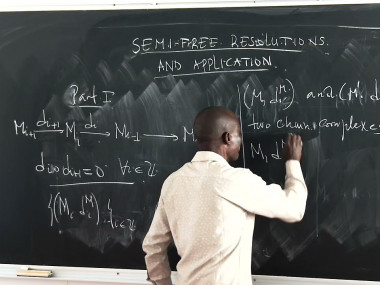 SEMI-FREE RESOLUTIONS
AND APPLICATION
Part I
M_{k+1} →^{d_{i+1}} M_i →^{d_i} M_{k-1} → M
d_i∘d_{i+1} = 0 ∀i∈ℤ
{(M_i, d_i^M)}_{i∈ℤ}
(M, d^M) and (M', d
two chain complexes
M, d